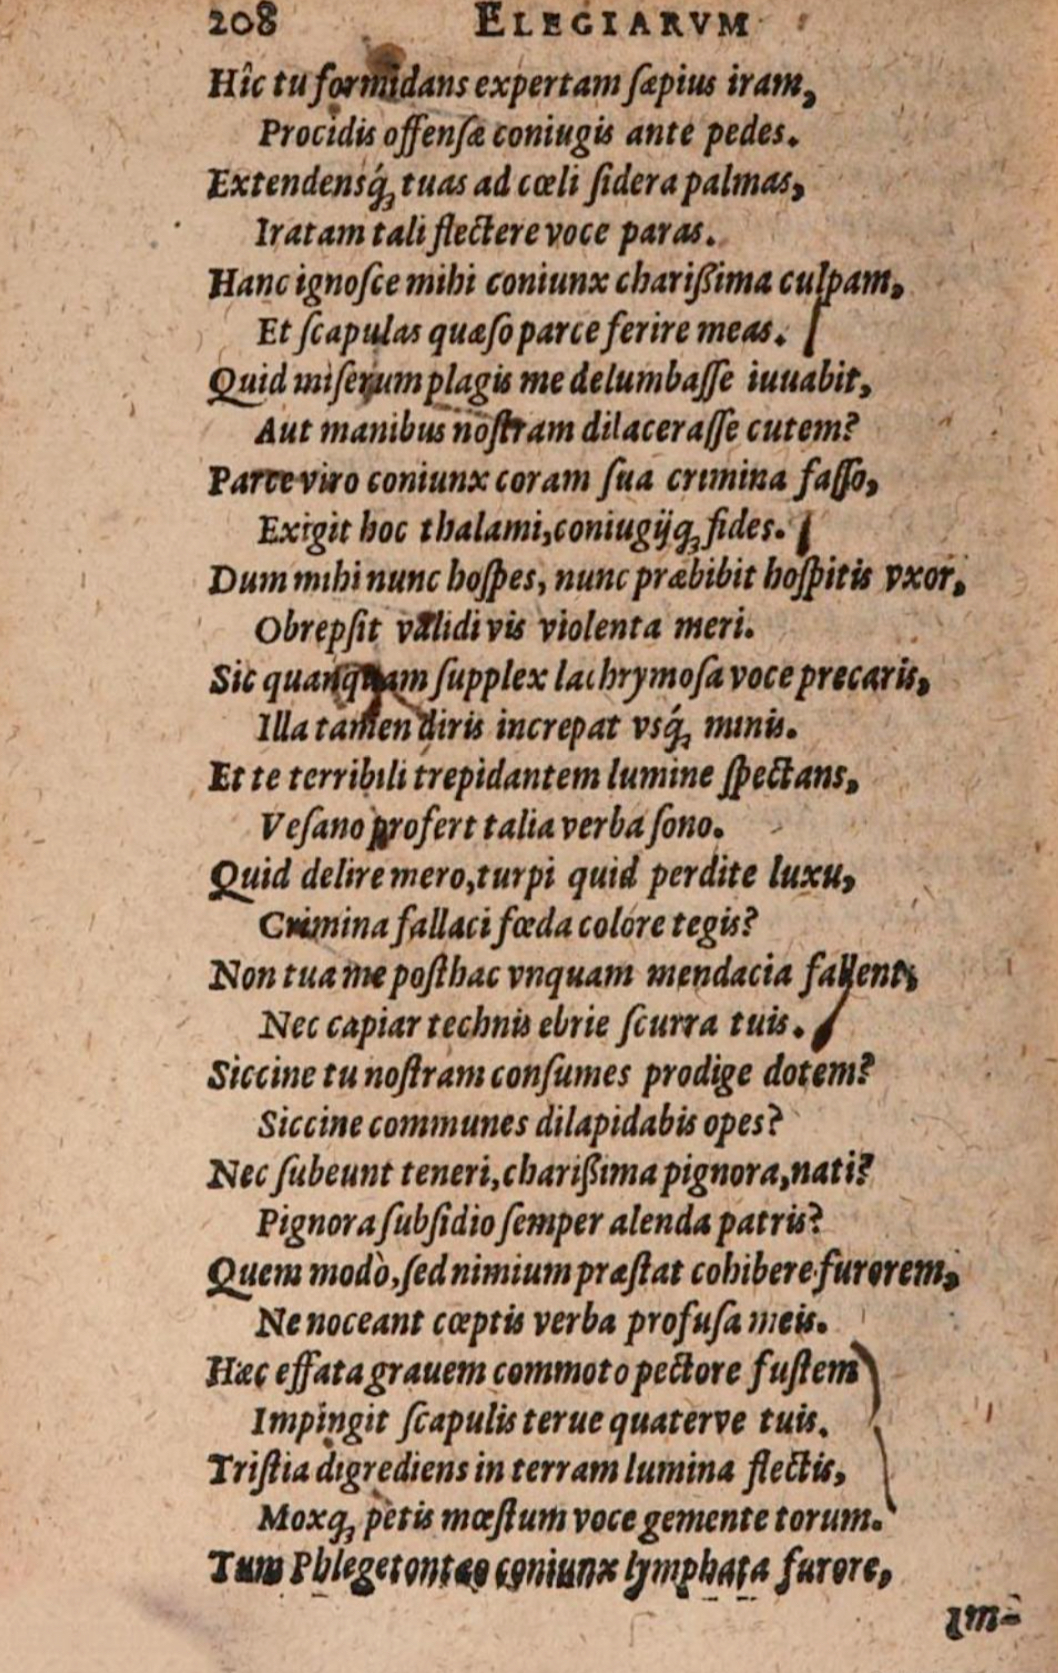 208 ELEGIARVM
Hîc tu formidans expertam sæpius iram,
Procidis offensæ coniugis ante pedes.
Extendensq́ꝫ tuas ad cœli sidera palmas,
Iratam tali flectere voce paras.
Hanc ignosce mihi coniunx charißima culpam,
Et scapulas quæso parce ferire meas.
Quid miserum plagis me delumbasse iuuabit,
Aut manibus nostram dilacerasse cutem?
Parce viro coniunx coram sua crimina fasso,
Exigit hoc thalami, coniugijqꝫ fides.
Dum mihi nunc hospes, nunc præbibit hospitis vxor,
Obrepsit validi vis violenta meri.
Sic quanquam supplex lachrymosa voce precaris,
Illa tamen diris increpat vsq́ꝫ minis.
Et te terribili trepidantem lumine spectans,
Vesano profert talia verba sono.
Quid delire mero, turpi quid perdite luxu,
Crimina fallaci fœda colore tegis?
Non tua me posthac vnquam mendacia fallent,
Nec capiar technis ebrie scurra tuis.
Siccine tu nostram consumes prodige dotem?
Siccine communes dilapidabis opes?
Nec subeunt teneri, charißima pignora, nati?
Pignora subsidio semper alenda patris?
Quem modò, sed nimium præstat cohibere furorem,
Ne noceant cœptis verba profusa meis.
Hæc effata grauem commoto pectore fustem
Impingit scapulis terue quaterve tuis.
Tristia digrediens in terram lumina flectis,
Moxqꝫ petis mœstum voce gemente torum.
Tum Phlegetontæo coniunx lymphata furore,
Im-